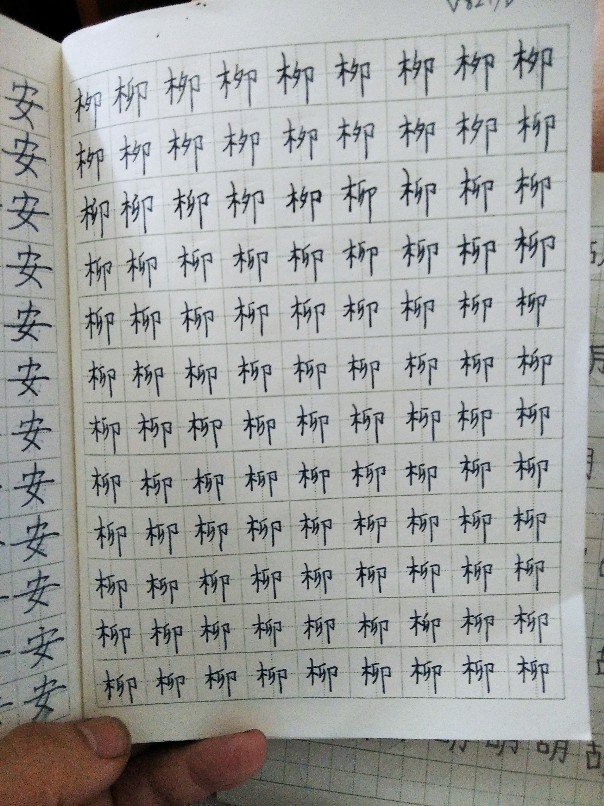 安
安
安
安
安
安
安
安
安
安
安
安
柳柳柳柳柳柳柳柳柳
柳柳柳柳柳柳柳柳柳
柳柳柳柳柳柳柳柳柳
柳柳柳柳柳柳柳柳柳
柳柳柳柳柳柳柳柳柳
柳柳柳柳柳柳柳柳柳
柳柳柳柳柳柳柳柳柳
柳柳柳柳柳柳柳柳柳
柳柳柳柳柳柳柳柳柳
柳柳柳柳柳柳柳柳柳
柳柳柳柳柳柳柳柳柳
柳柳柳柳柳柳柳柳柳
胡